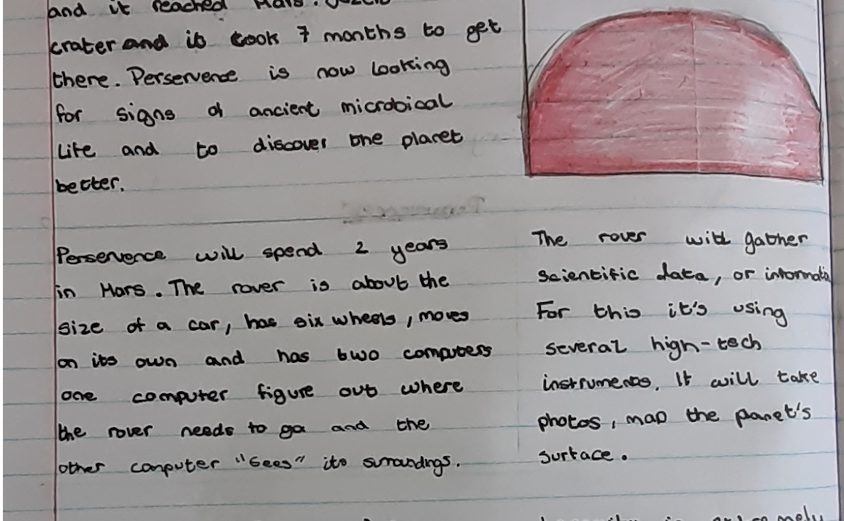 and it reached Mars.
crater and it took 7 months to get
there. Perservence is now looking
for signs of ancient microbical
Life and to discover the planet
better.
Perservence will spend 2 years
in Mars. The rover is about the
size of a car, has six wheels, moves
on its own and has two computers
one computer figure out where
the rover needs to go and the
other computer "sees" its surroundings.
The rover will gather
scientific data, or informatio
For this it's using
several high-tech
instruments. It will take
photos, map the planet's
surface.